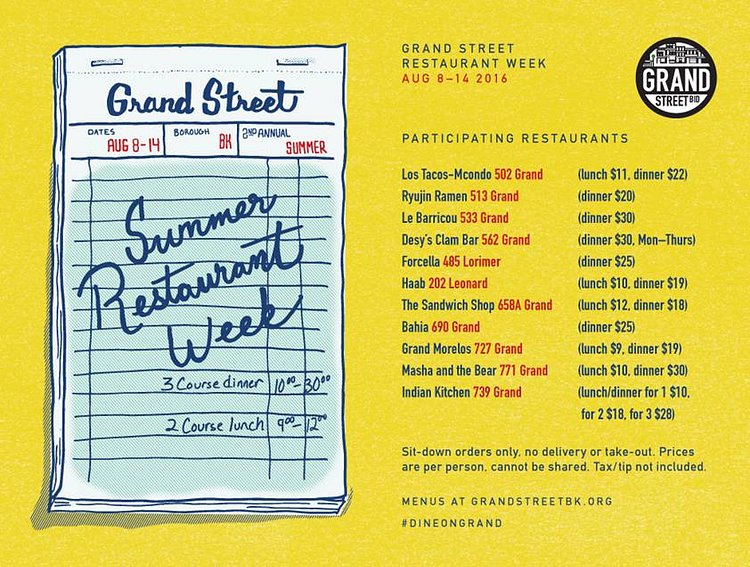 Grand Street
DATES AUG 8-14 BOROUGH BK 2ND ANNUAL SUMMER
Summer
Restaurant
Week
3 Course dinner 10⁰⁰-30⁰⁰
2 Course lunch 9⁰⁰-12⁰⁰
GRAND STREET
RESTAURANT WEEK
AUG 8–14 2016
GRAND
STREET BID
PARTICIPATING RESTAURANTS
Los Tacos-Mcondo 502 Grand (lunch $11, dinner $22)
Ryujin Ramen 513 Grand (dinner $20)
Le Barricou 533 Grand (dinner $30)
Desy's Clam Bar 562 Grand (dinner $30, Mon–Thurs)
Forcella 485 Lorimer (dinner $25)
Haab 202 Leonard (lunch $10, dinner $19)
The Sandwich Shop 658A Grand (lunch $12, dinner $18)
Bahia 690 Grand (dinner $25)
Grand Morelos 727 Grand (lunch $9, dinner $19)
Masha and the Bear 771 Grand (lunch $10, dinner $30)
Indian Kitchen 739 Grand (lunch/dinner for 1 $10,
for 2 $18, for 3 $28)
Sit-down orders only, no delivery or take-out. Prices
are per person, cannot be shared. Tax/tip not included.
MENUS AT GRANDSTREETBK.ORG
#DINEONGRAND